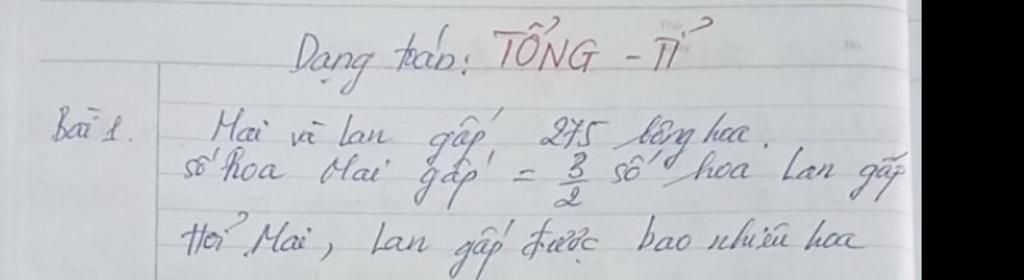 Dạng toán: TỔNG - TỈ
Bài 1. Mai và Lan gấp 275 bông hoa.
số hoa Mai gấp = 3/2 số hoa Lan gấp
Hỏi Mai, Lan gấp được bao nhiêu hoa